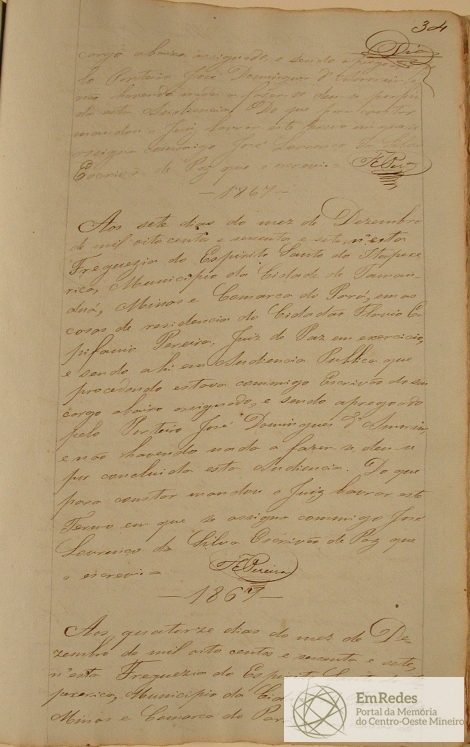 34
cargo abaixo assignado, e sendo apregoado
pelo Porteiro José Domingues d'Amorim, e
não havendo nada a fazer se deu por fin
da esta Audiencia. Do que para constar
mandou o Juiz lavrar este termo em que se
assigna comigo José Lourenço da Silva
Escrivão de Paz que o escrevi.
—1867—
Aos sete dias do mez de Dezembro
de mil oito centos e secenta e sete, n'esta
Freguezia do Espirito Santo do Itapece
rica, Municipio da Cidade de Taman
duá, Minas e Comarca do Pará, em as
casas de residencia do Cidadão Flavio E
pifanio Pereira, Juiz de Paz em exercicio,
e sendo ahi em Audiencia Publica que
procedendo estava commigo Escrivão do seu
cargo abaixo assignado, e sendo apregoado
pelo Porteiro José Domingues d'Amorim,
e não havendo nada a fazer se deu
por concluida esta Audiencia. Do que
para constar mandou o Juiz lavrar este
Termo em que se assigna commigo José
Lourenço da Silva Escrivão de Paz que
o escrevi.
E Pereira
—1867—
Aos quatorze dias do mez de De
zembro de mil oito centos e secenta e sete,
n'esta Freguezia do Espirito Santo do
pecerica, Municipio da Cid
Minas e Comarca do Par
EmRedes
Portal da Memória
do Centro-Oeste Mineiro